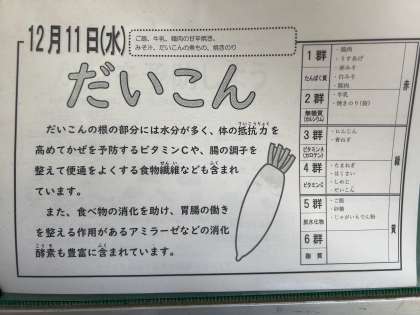 12月11日(水)
ご飯、牛乳、鶏肉の甘辛焼き、
みそ汁、だいこんの煮もの、焼きのり
だいこん
だいこんの根の部分には水分が多く、体の抵抗力を
高めてかぜを予防するビタミンCや、腸の調子を
整えて便通をよくする食物繊維なども含まれ
ています。
また、食べ物の消化を助け、胃腸の働き
を整える作用があるアミラーゼなどの消化
酵素も豊富に含まれています。
1群
たんぱく質
・鶏肉
・うすあげ
・赤みそ
・白みそ
・鶏肉
2群
無機質
(カルシウム)
・牛乳
・焼きのり(個)
3群
ビタミンA
(カロテン)
・にんじん
・青ねぎ
4群
ビタミンC
・たまねぎ
・はくさい
・しめじ
・だいこん
5群
炭水化物
・ご飯
・砂糖
・じゃがいもでん粉
6群
脂質
赤
緑
黄